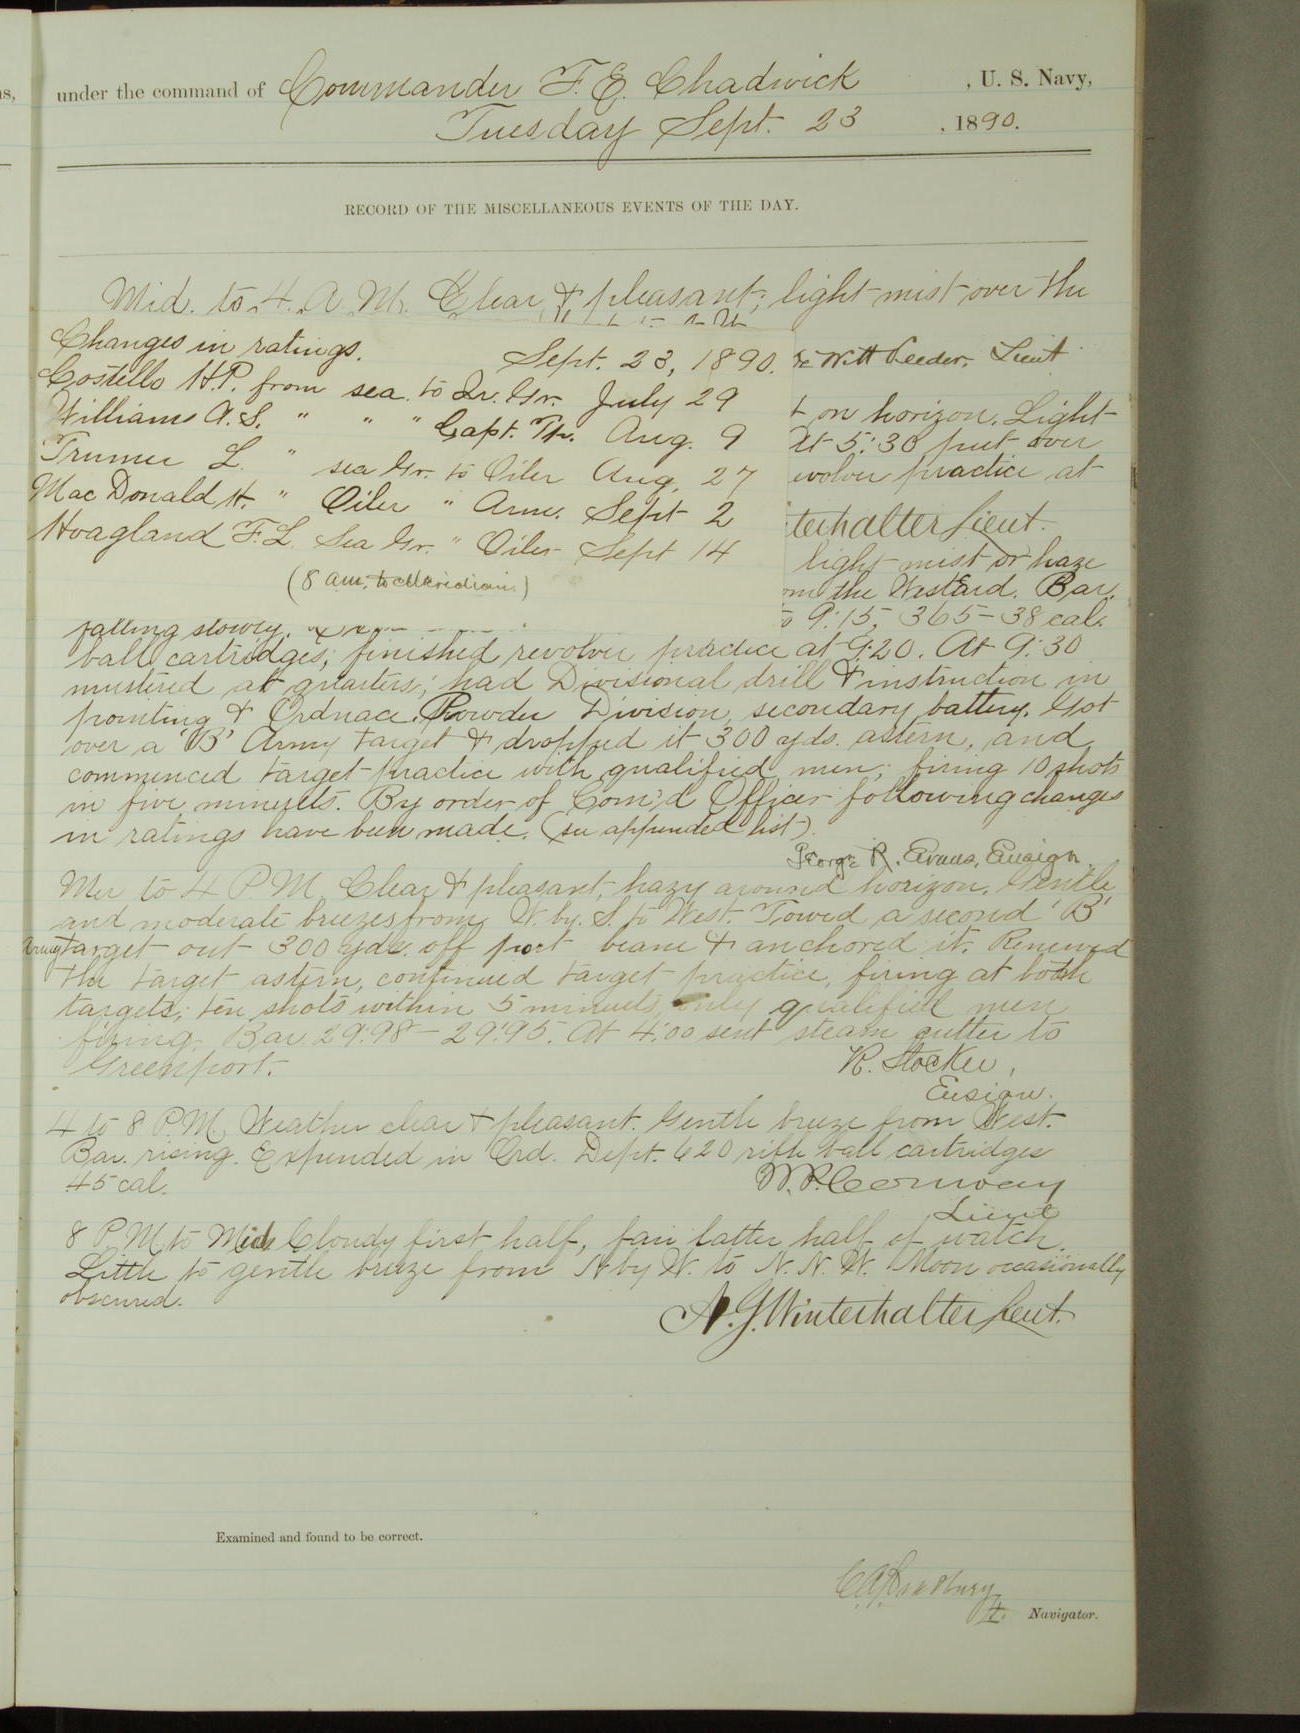 ns,
under the command of Commander F. E. Chadwick , U. S. Navy,
Tuesday Sept. 23 , 1890.
RECORD OF THE MISCELLANEOUS EVENTS OF THE DAY.
Mid. to 4. A. M. Clear & pleasant; light mist over the
Changes in ratings. Sept. 23, 1890.
Witt Veeder. Lieut
Costello H.P. from sea. to Qr. Gr. July 29
Williams A. S. " " " Capt. Top. Aug. 9
t on horizon. Light
Trumer L. " sea Gr. to Oiler Aug. 27
At 5:30 put over
Mac Donald H. " Oiler " Arm. Sept 2
evolver practice at
Hoagland F. L. Sea Gr. " Oiler Sept 14
terhalter Lieut.
(8 am. to Meridian.)
light mist or haze
om the West'ard. Bar.
o 9:15, 365-38 cal.
falling slowly.
ball cartridges; finished revolver practice at 9:20. At 9:30
mustered at quarters; had Divisional drill & instruction in
pointing & Ordnace. Powder Division, secondary battery. Got
over a 'B' Army target & dropped it 300 yds. astern, and
commenced target practice with qualified men; firing 10 shots
in five minuets. By order of Com'd Officer following changes
in ratings have been made. (see appended list).
George R. Evans, Ensign.
Mer to 4 P M. Clear & pleasant, hazy around horizon. Gentle
and moderate breezes from W. by. S. to West. Towed a second 'B'
Army target out 300 yds. off port beam & anchored it. Renewed
the target astern, continued target practice, firing at both
targets; ten shots within 5 minuets, only qualified men
firing. Bar 29.98 - 29.95. At 4:00 sent steam cutter to
Greenport.
R. Stocker,
Ensign.
4 to 8 P.M. Weather clear & pleasant. Gentle breeze from West.
Bar. rising. Expended in Ord. Dept. 620 rifle ball cartridges
45 cal.
W. P. Conway
Lieut
8 P.M. to Mid Cloudy first half, fair latter half of watch.
Little to gentle breeze from N by W. to N. N. W. Moon occasionally
obscured.
A. G. Winterhalter Lieut.
Examined and found to be correct.
Navigator.